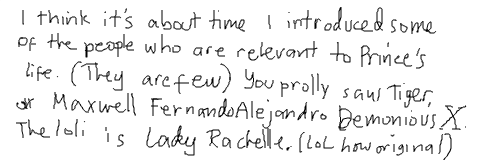 I think it's about time I introduced some
of the people who are relevant to Prince's
life. (They are few) You prolly saw Tiger,
or Maxwell Fernando Alejandro Demonious X.
The loli is Lady Rachelle. (LoL how original)